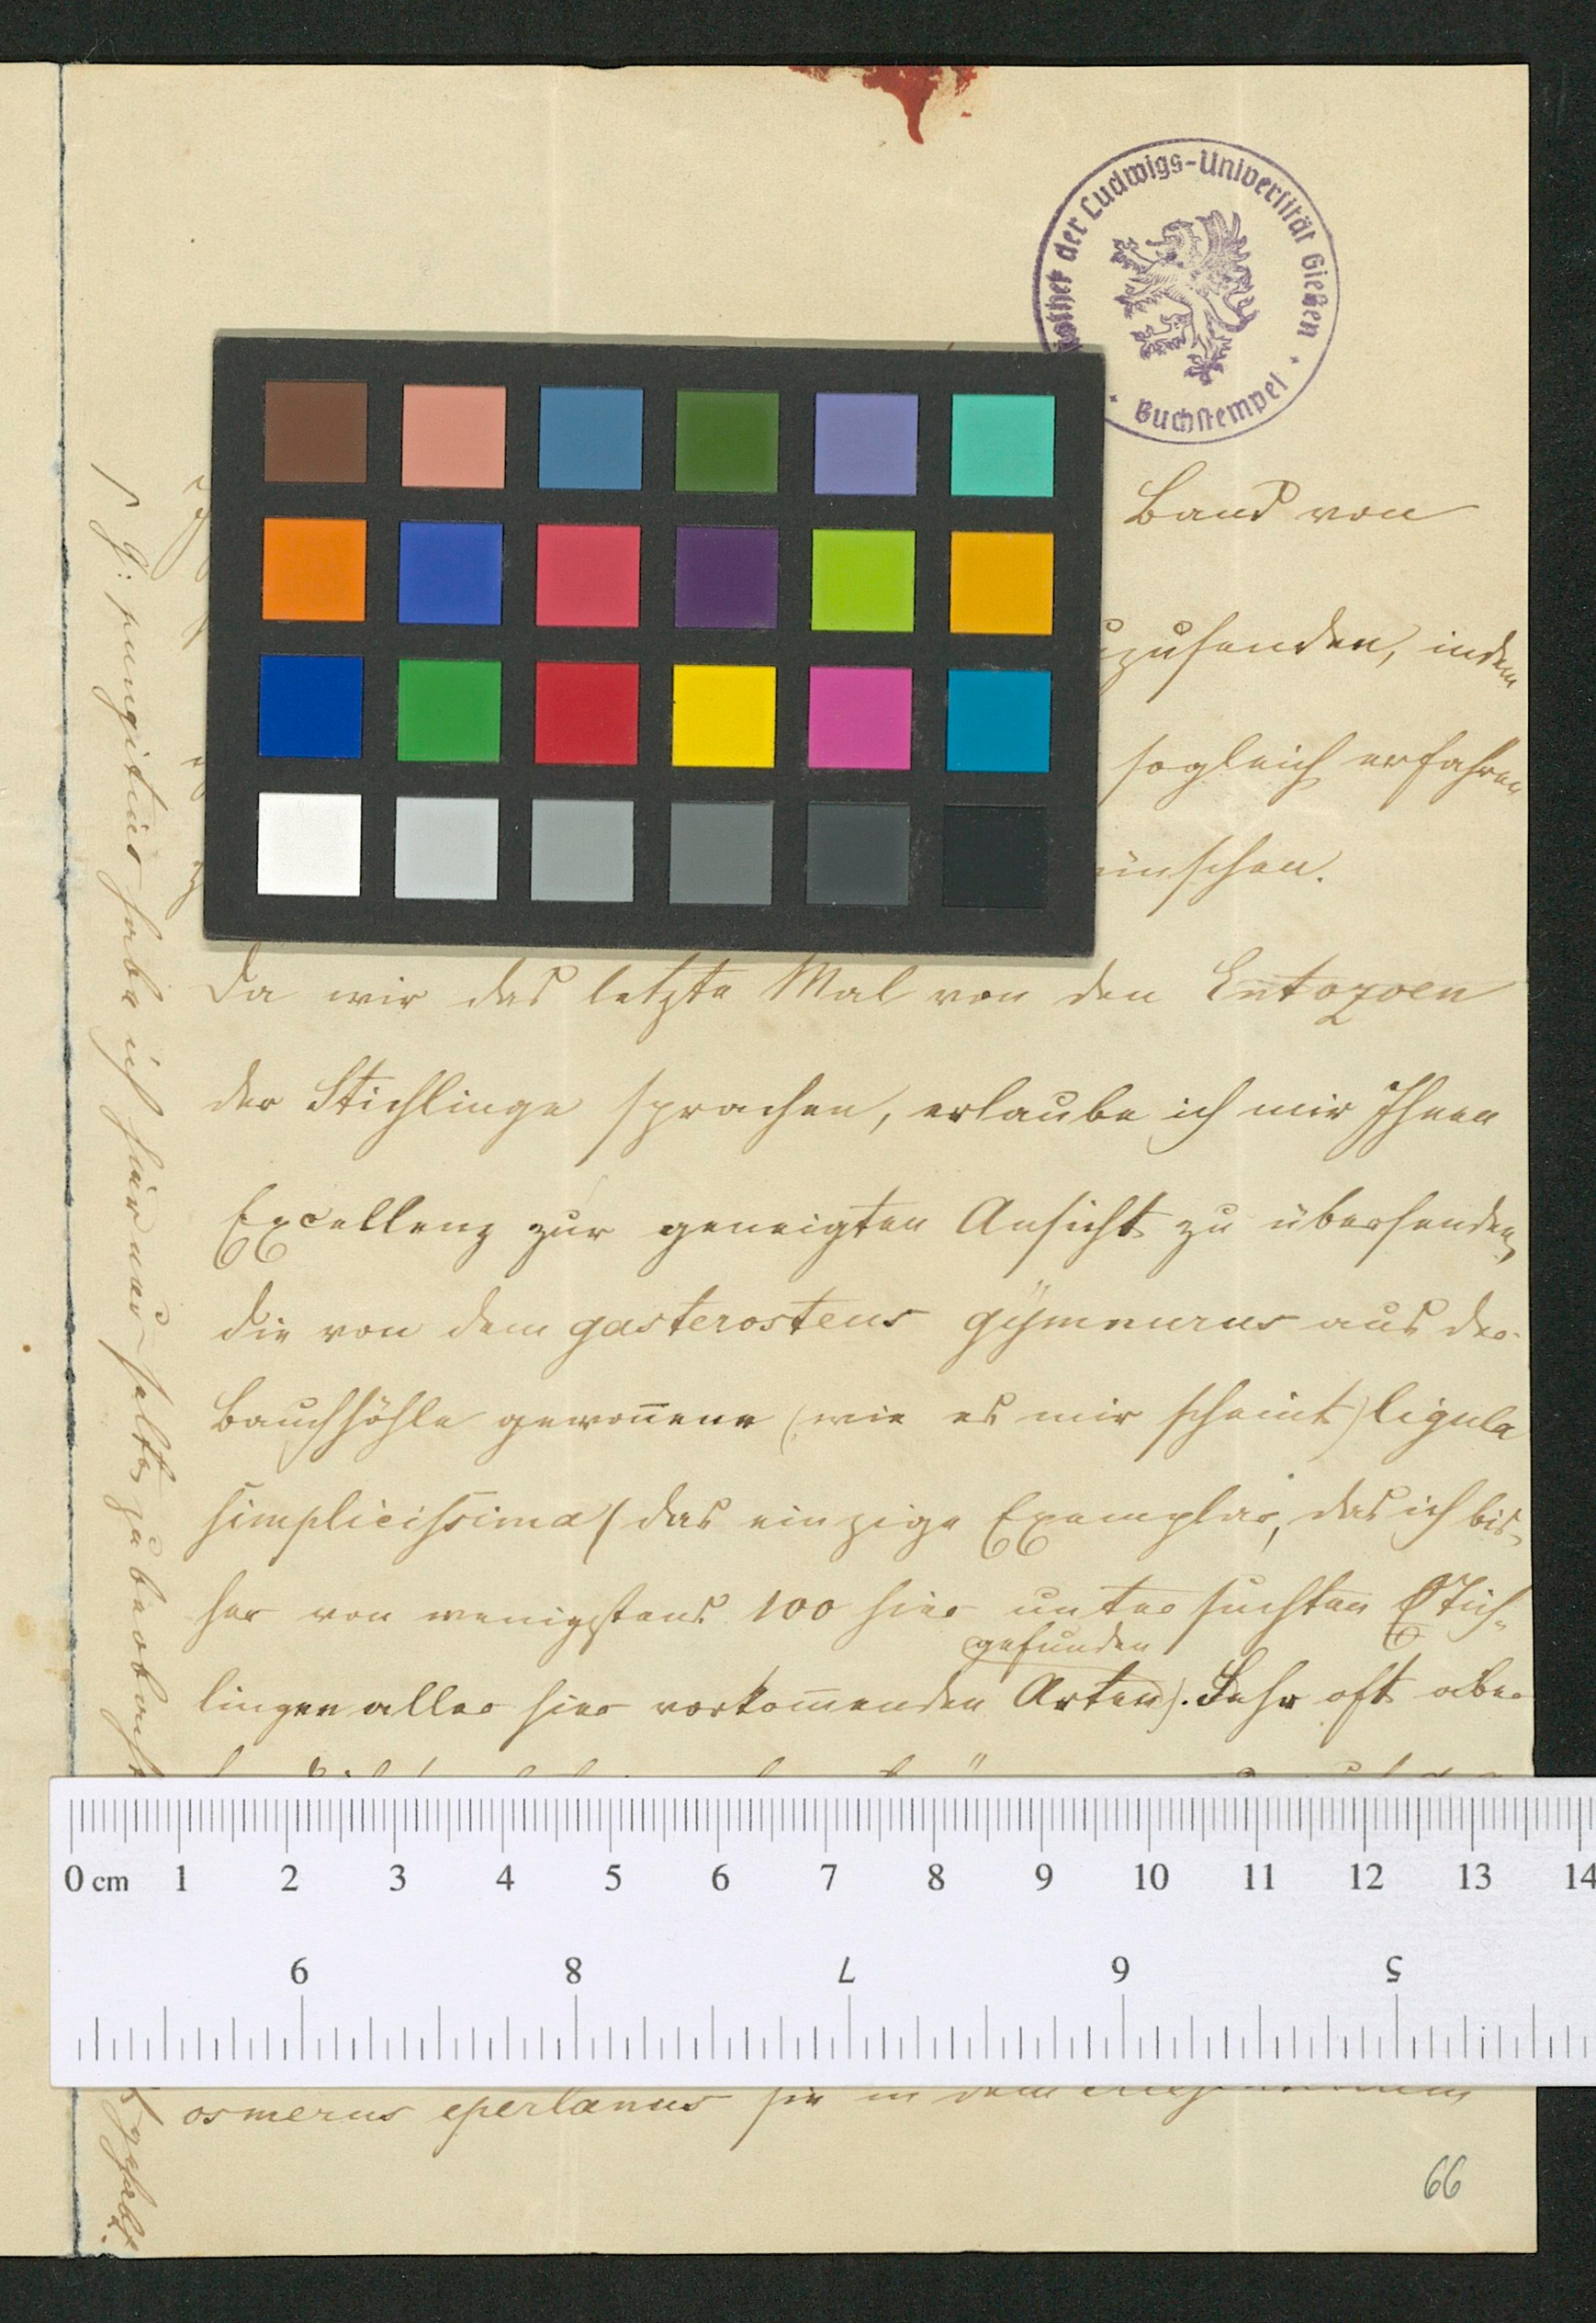 Bibliothek der Ludwigs-Universität Gießen
Buchstempel
Band von
zuzusenden, indem
sogleich erfahren
wünschen.
Da wir das letzte Mal von den Entozoen
der Stichlinge sprachen, erlaube ich mir Ihnen
Excellenz zur geneigten Ansicht zu übersenden,
die von dem gasterosteus gÿmnurus aus der
Bauchhöhle gewon̄ene (wie es mir scheint) ligula
simplicissima (das einzige Exemplar, das ich bis-
her von wenigstens 100 hier untersuchten Stich-
gefunden
lingen aller hier vorkom̄enden Arten). Sehr oft aber
osmerus eperlanus sie in dem
66
g: pungitius habe ich hier nur selten zu beobachten
gehabt.
0 cm 1 2 3 4 5 6 7 8 9 10 11 12 13 14
9 8 7 6 5